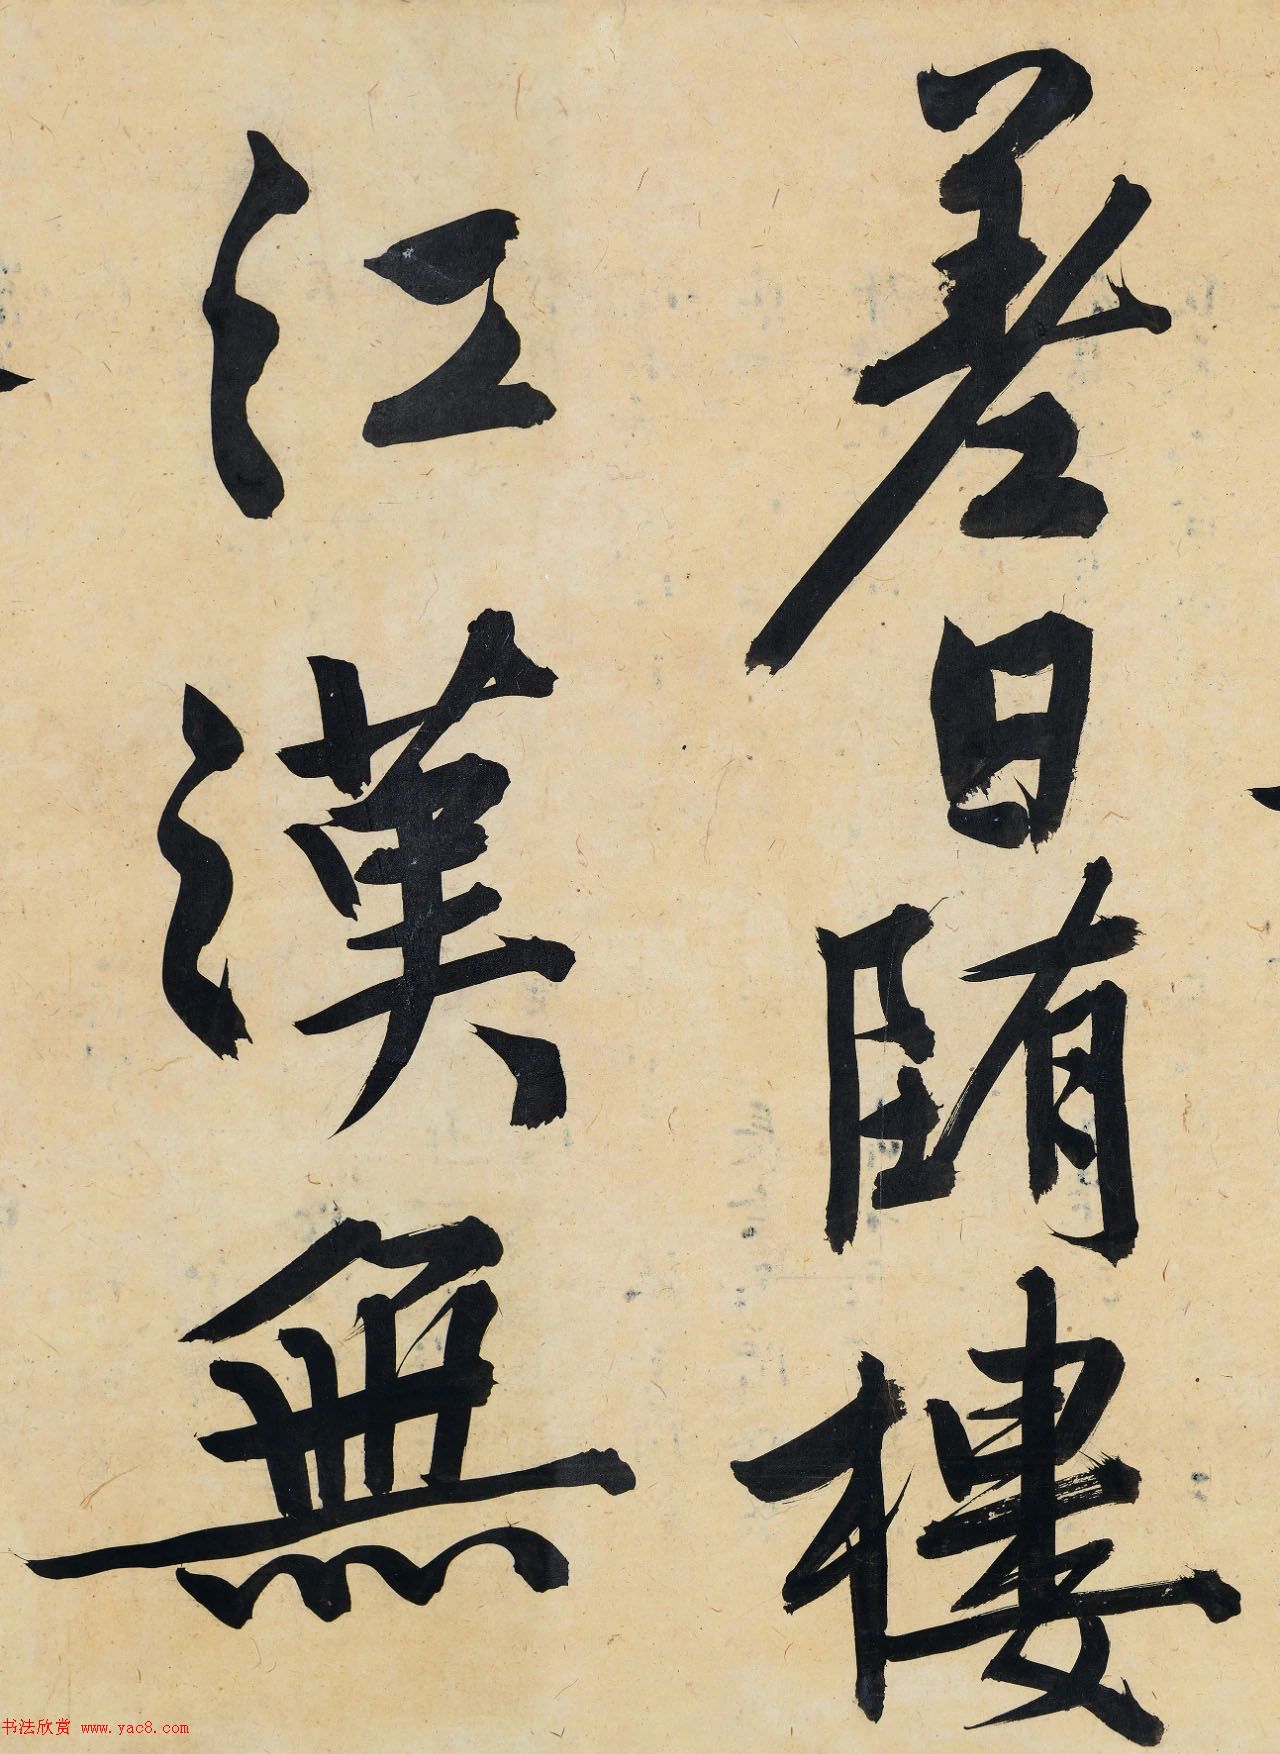 差日樓
江漢無
书法欣赏 www.yac8.com